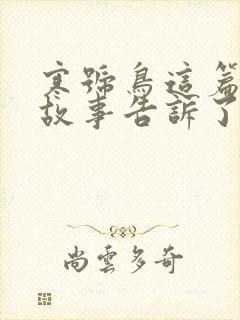 寒號鳥這篇
故事告訴了
尚雲多奇